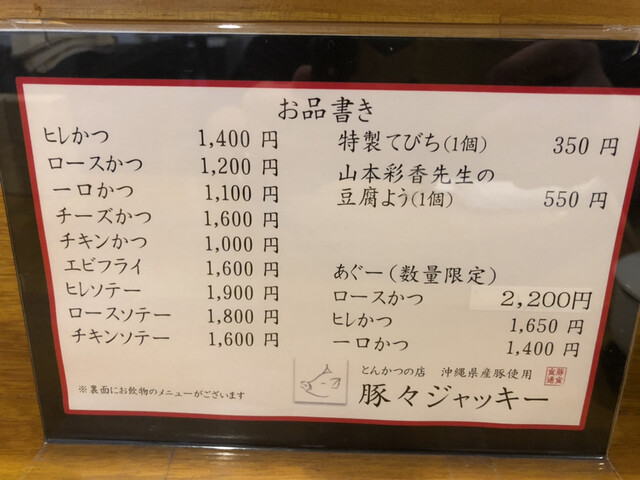 お品書き
ヒレかつ 1,400 円
ロースかつ 1,200 円
一口かつ 1,100 円
チーズかつ 1,600 円
チキンかつ 1,000 円
エビフライ 1,600 円
ヒレソテー 1,900 円
ロースソテー 1,800 円
チキンソテー 1,600 円
※裏面にお飲物のメニューがございます
特製てびち(1個) 350 円
山本彩香先生の
豆腐よう(1個) 550 円
あぐー(数量限定)
ロースかつ 2,200円
ヒレかつ 1,650 円
一口かつ 1,400 円
とんかつの店 沖縄県産豚使用
豚々ジャッキー